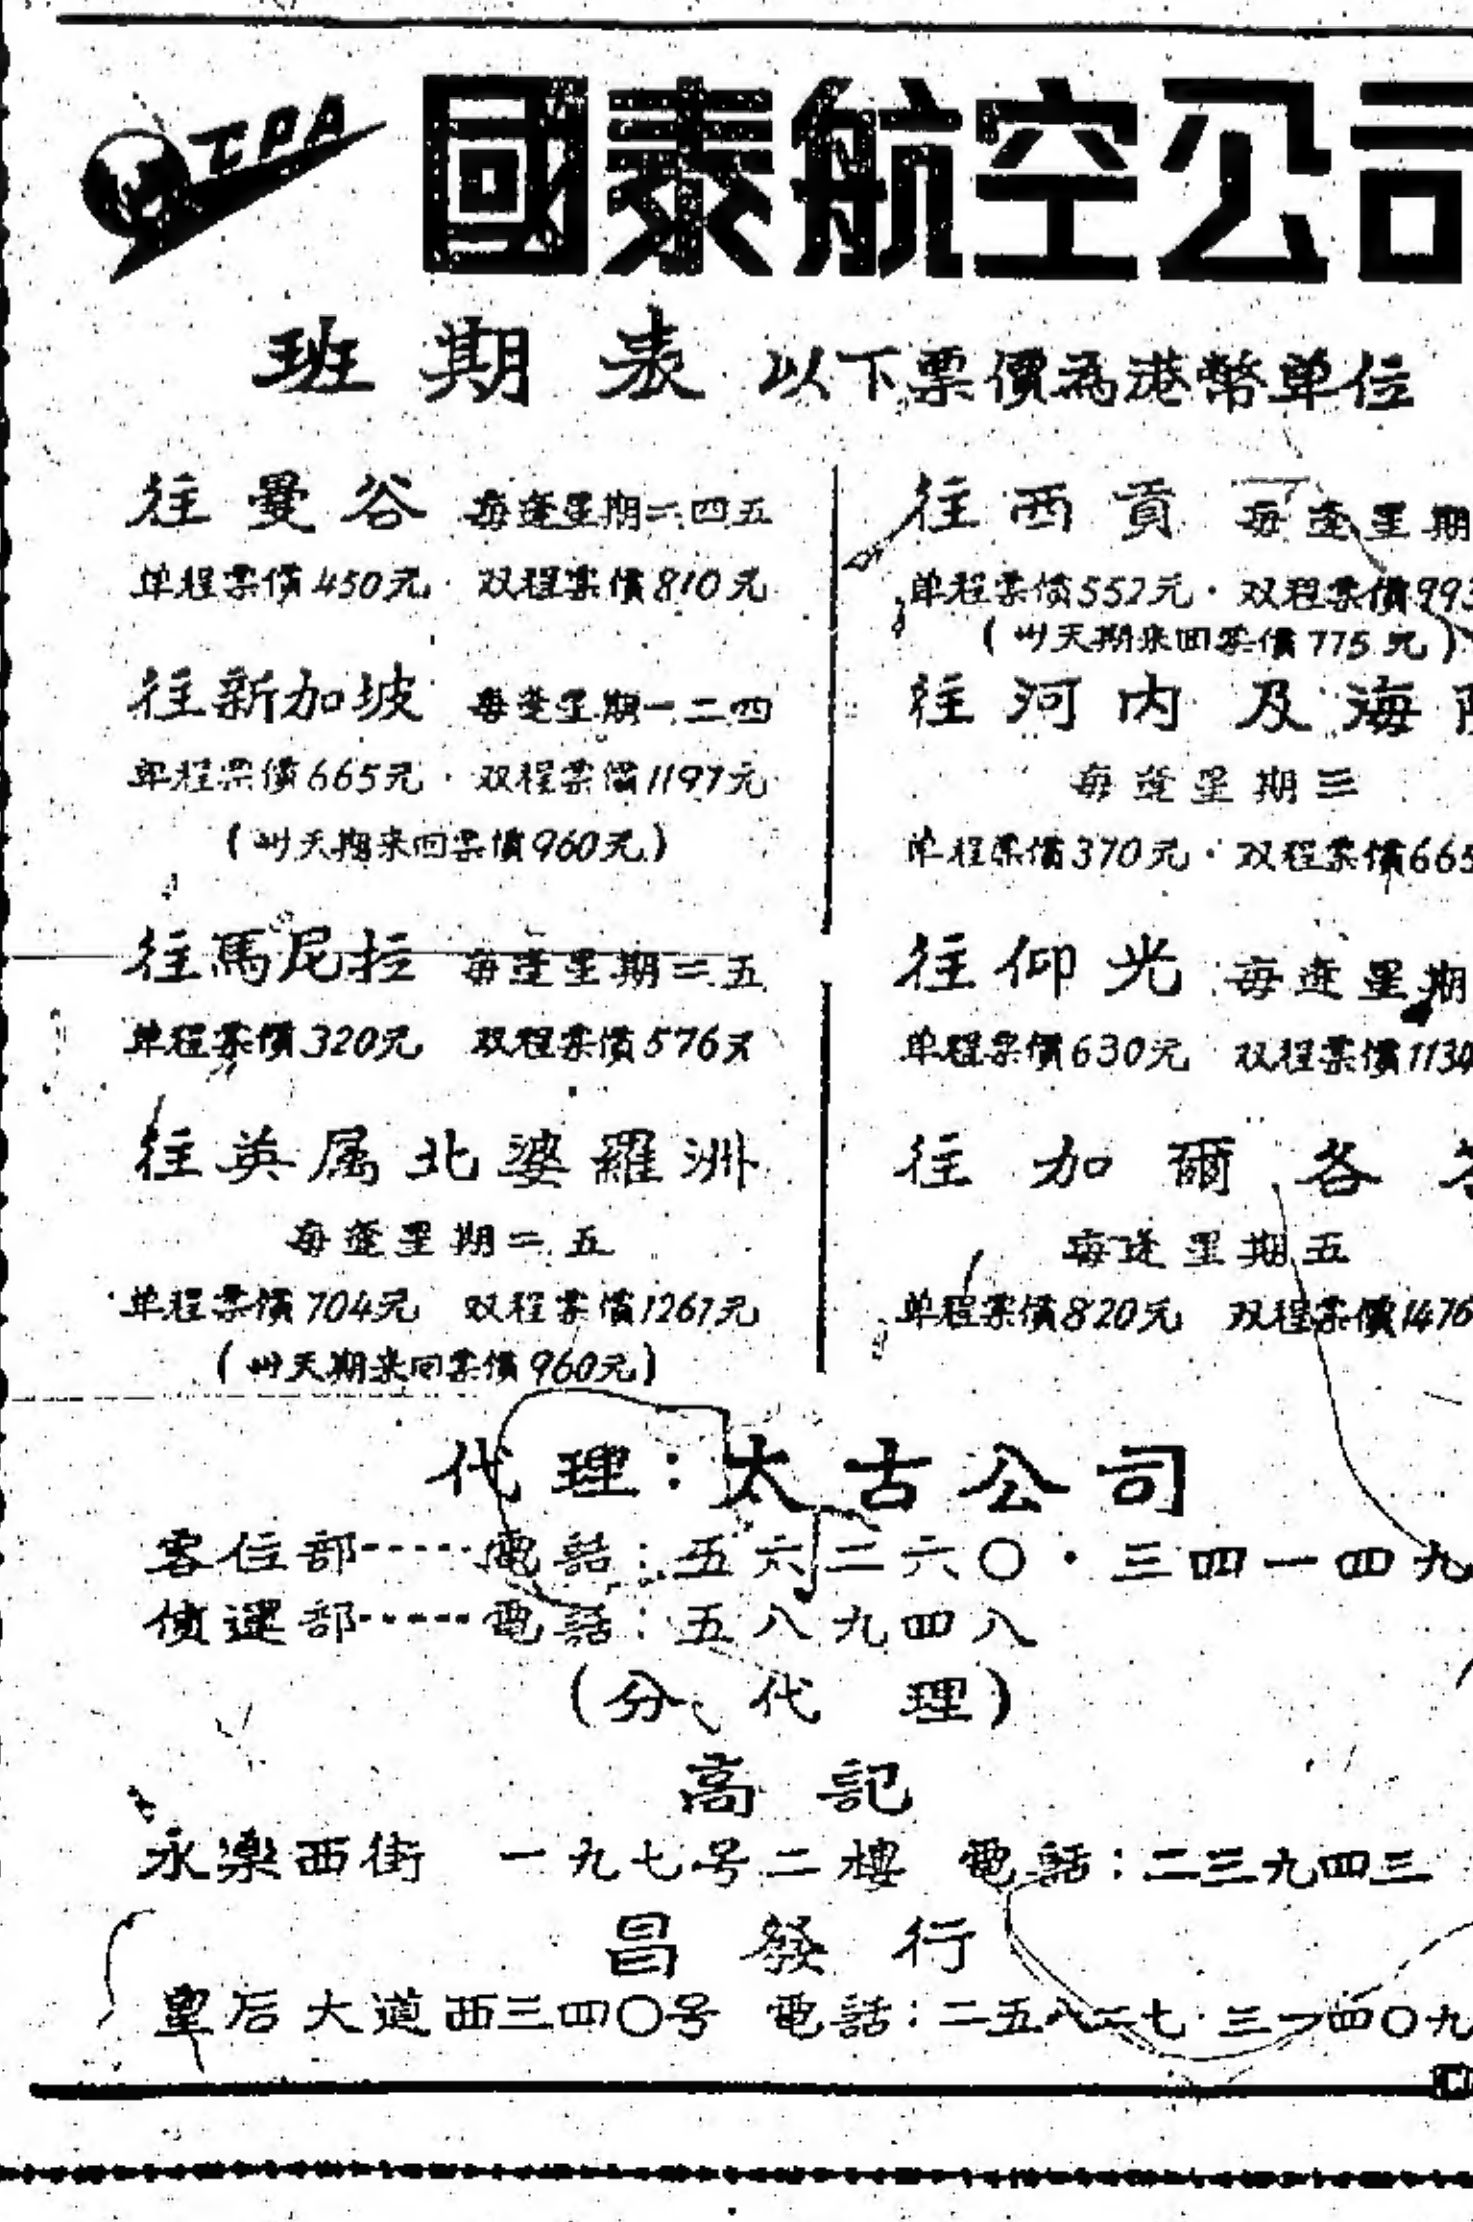 CPA 國泰航空公司
班期表 以下票價為港幣单位
往曼谷 每逢星期二四五
单程票價450元·双程票價810元
往新加坡 每逢星期一二四
单程票價665元·双程票價1197元
(卅天期来回票價960元)
往馬尼拉 每逢星期二五
单程票價320元 双程票價576元
往英属北婆羅洲
每逢星期二五
单程票價704元 双程票價1267元
(卅天期来回票價960元)
往西貢 每逢星期
单程票價552元·双程票價993
(卅天期来回票價775元)
往河内及海
每逢星期三
单程票價370元·双程票價665
往仰光 每逢星期
单程票價630元 双程票價1134
往加爾各
每逢星期五
单程票價820元 双程票價1476
代理:太古公司
客位部----電話:五六二六〇·三四一四九
貨運部----電話:五八九四八
(分代理)
高記
永樂西街 一九七号二樓 電話:二三九四三
昌發行
皇后大道西三四〇号 電話:二五八二七·三一四〇九